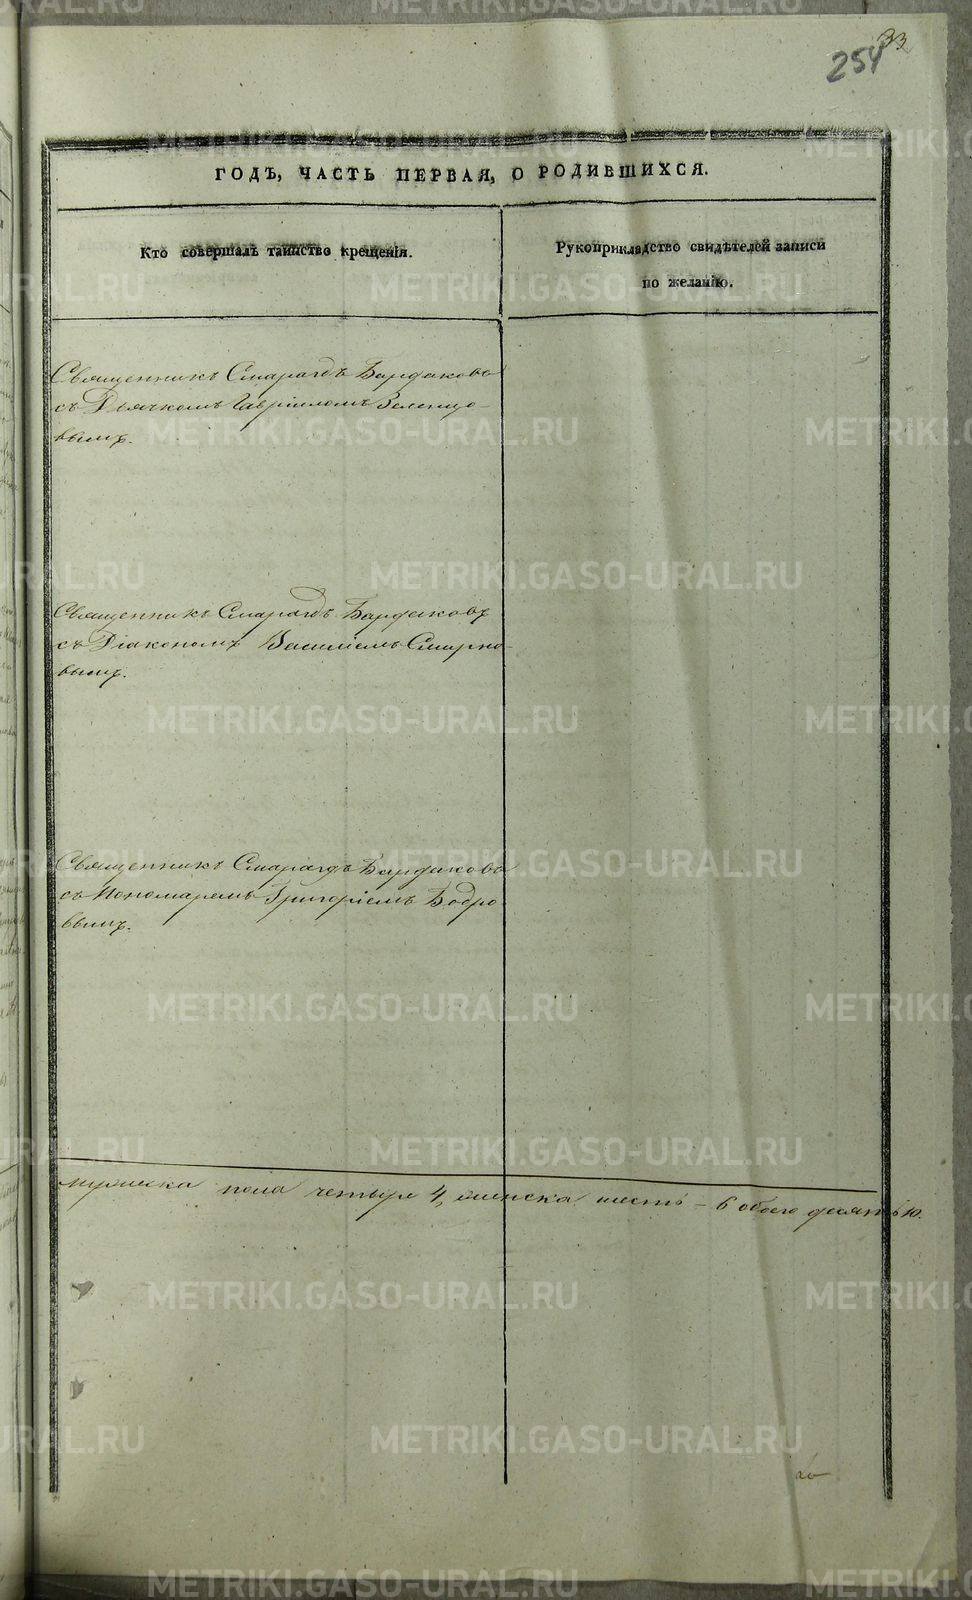 33
254
ГОДЪ, ЧАСТЬ ПЕРВАЯ, О РОДИВШИХСЯ.
Кто совершалъ таинство крещенія.
Рукоприкладство свидѣтелей записи
по желанію.
Священникъ Смарагдъ Бардаковъ
съ Дьячкомъ Гавріиломъ Зеленцо-
вымъ.
Священникъ Смарагдъ Бардаковъ
съ Діакономъ Василіемъ Смирно-
вымъ.
Священникъ Смарагдъ Бардаковъ
съ Пономаремъ Григоріемъ Бодро
вымъ.
мужеска пола четыре 4, женска шесть - 6 обоего десять 10.
METRIKI.GASO-URAL.RU